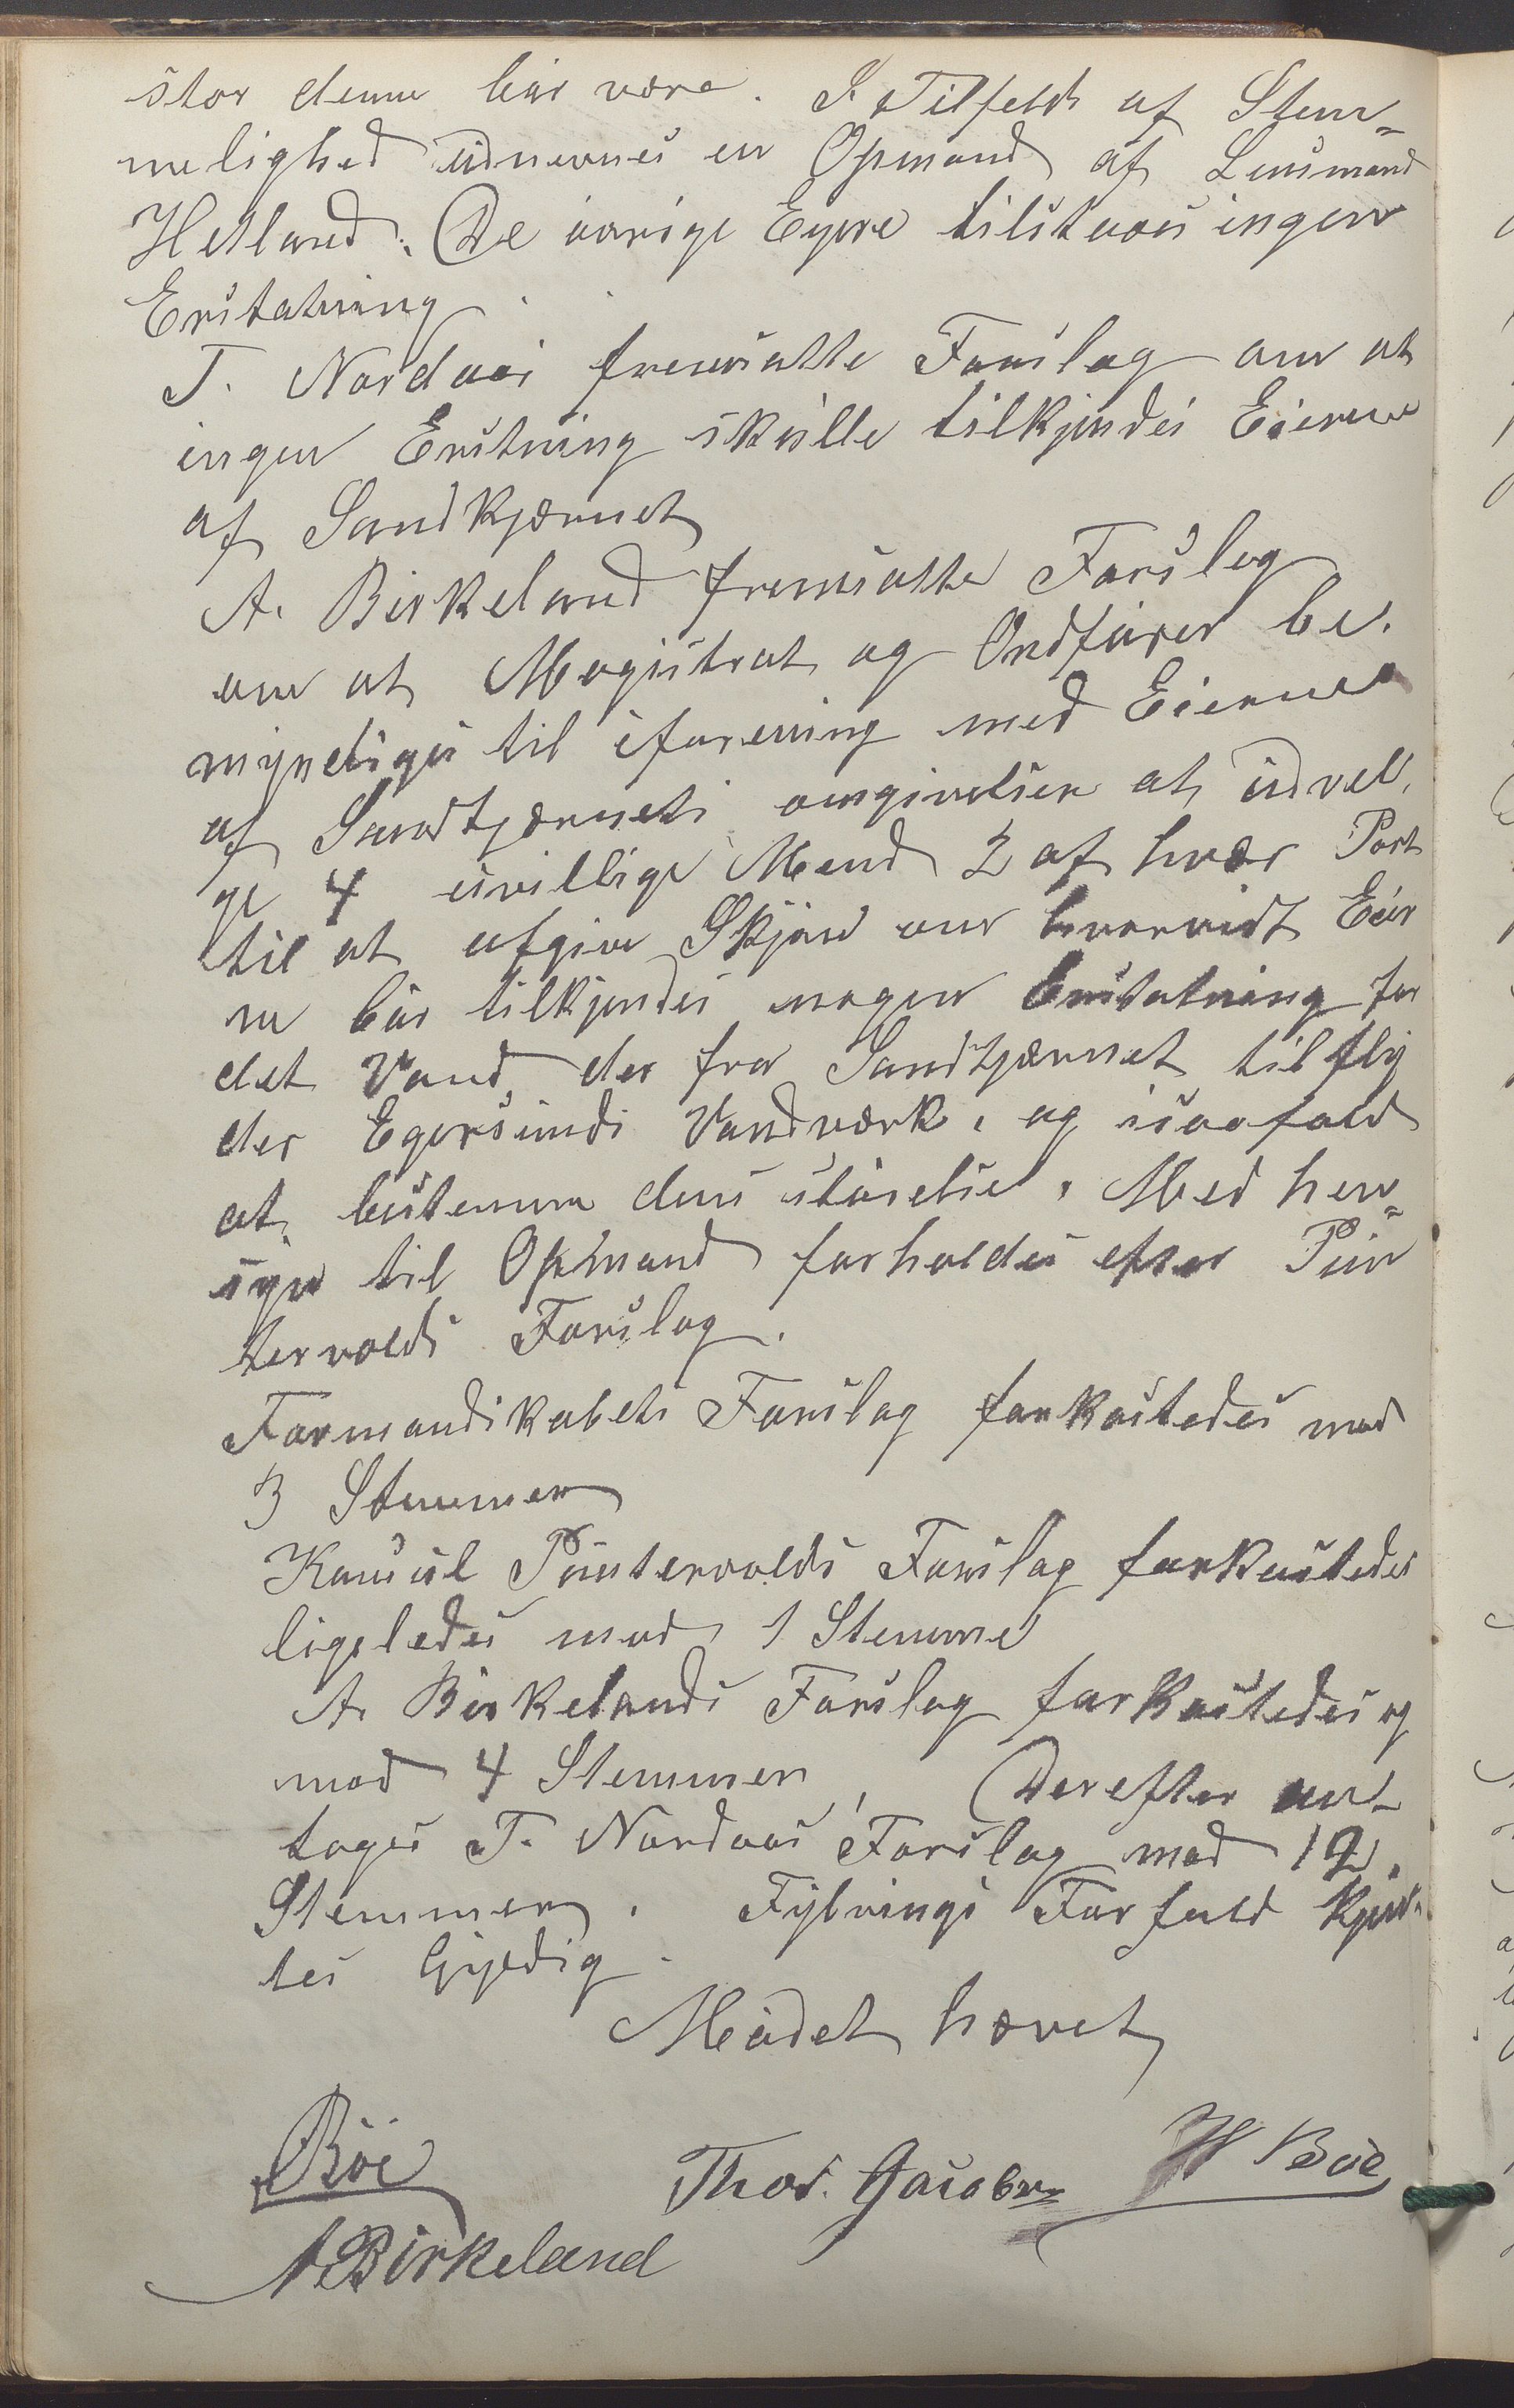 stor denne bør være. I Tilfeld af Stem-
melighed udnevnes en Opmand af Lensmand
Hetland. De øvrige Eyere tilstaaes ingen
Erstatning.
T. Nordaas fremsatte Forslag om at
ingen Erstning skulle tilkjendes Eierne
af Sandkjærnet
A. Birkeland fremsatte Forslag
om at Magistrat og Ordfører be-
myndiges til iforening med Eierne
af Sandtjærnets omgivelser at udvel-
ge 4 uvillige Mend 2 af hver Part
til at afgive Skjøn om hvorvidt Eier
ne bør tilkjendes nogen Erstatning for
det Vand, der fra Sandtjærnet tilfly
der Egersunds Vandværk, og isaafald
at bestemme dens størelse. Med hen-
syn til Opmand forholdes efter Pun
tervolds Forslag.
Formandskabets Forslag forkastedes mod
3 Stemmer
Konsul Puntervolds Forslag forkastedes
ligeledes mod 1 Stemme
A. Birkelands Forslag forkastedes og
mod 4 Stemmer, Derefter an-
toges T. Nordaas Forslag mod 12
Stemmer. Fylvings Forfald kjen-
tes Gyldig.
Mødet hævet
Bøe Thor. Jacobsen H Bøe
A Birkeland